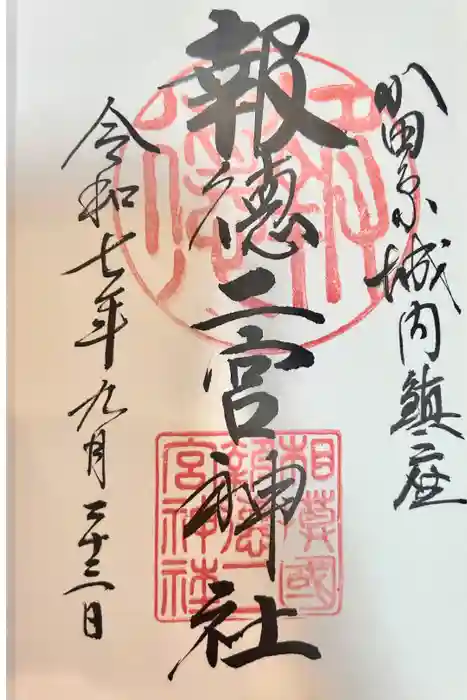 小田原城内鎮座
報徳二宮神社
令和七年九月二十三日
相莫國
報徳二
宮神社